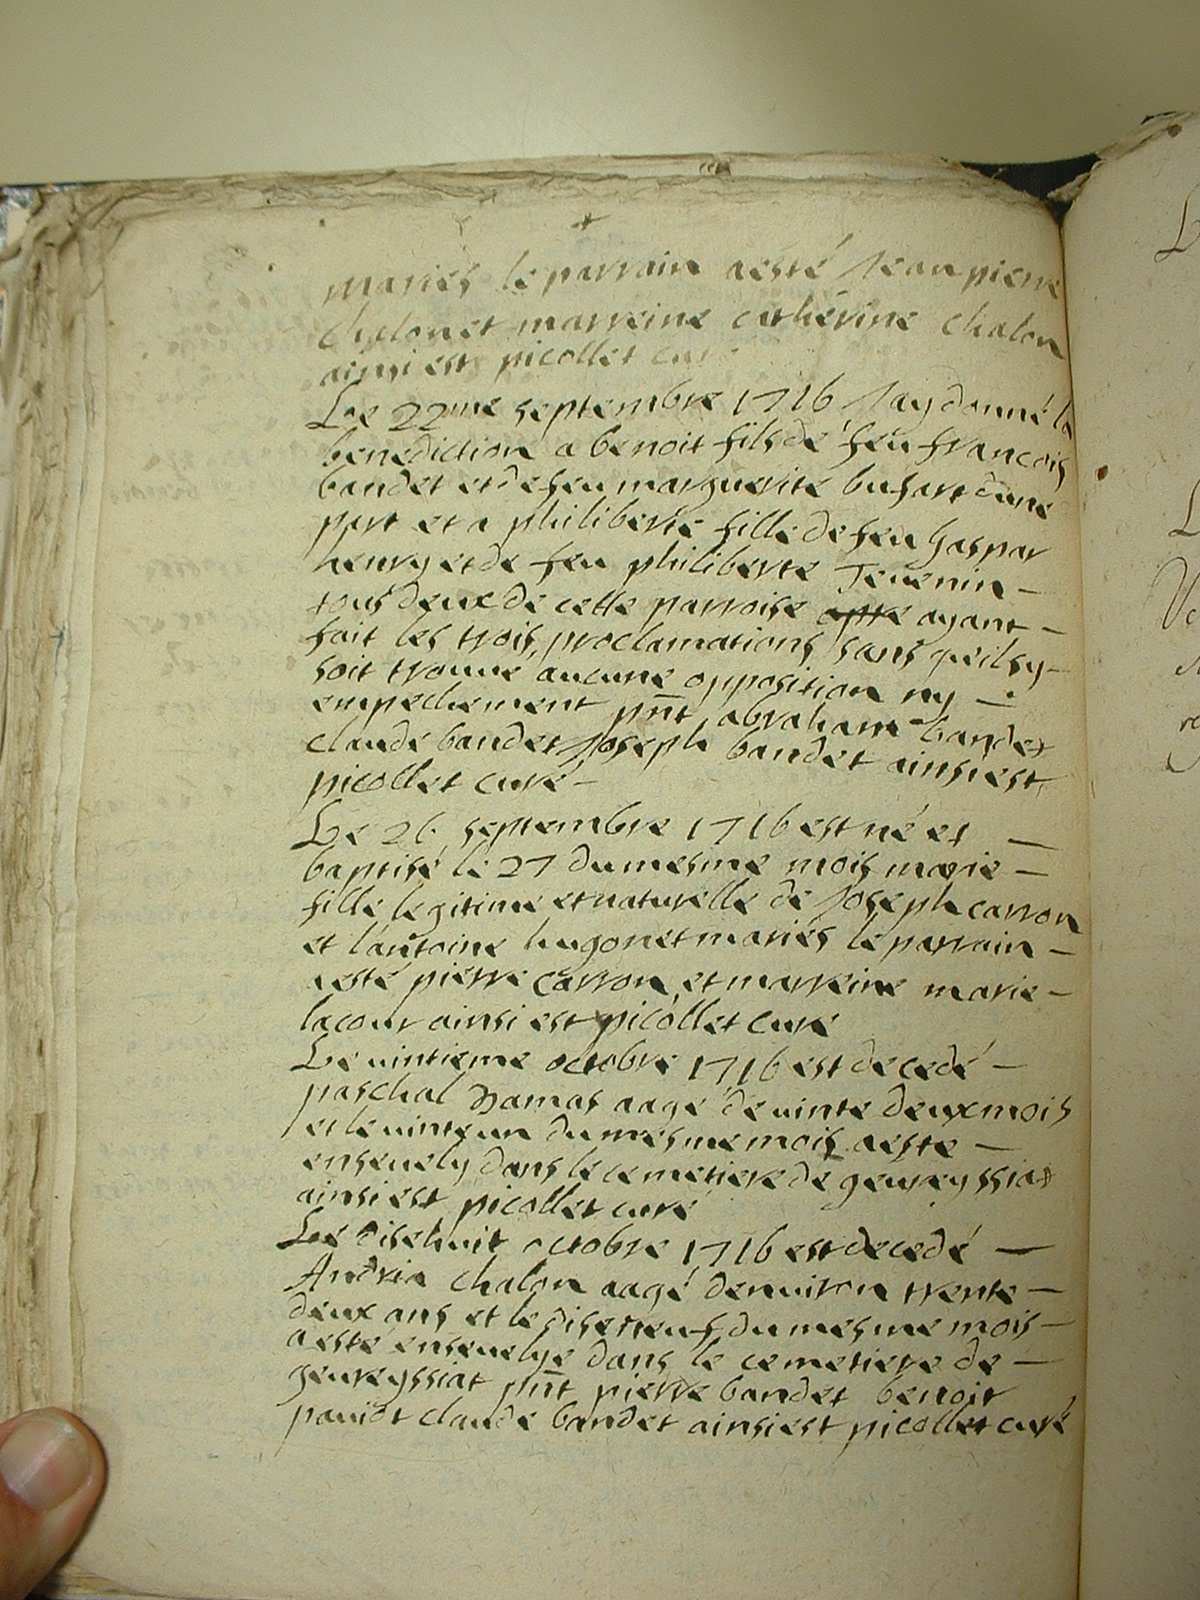 mariés le parrain aesté Jean pierre
chalon et marreine catherine chalon
ainsi est picollet curé
Le 22me septembre 1716 Jay donné la
benediction a benoit fils de feu francois
bandet et de feu marguerite bufart dune
part et a philiberte fille de feu gaspar
henry et de feu philiberte Jevenin –
tous deux de cette parroise apre ayant –
fait les trois proclamations sans quil sy –
soit trouué aucune opposition ny –
empechement pnt abraham bandet
claude bandet Joseph bandet ainsi est
picollet curé –
Le 26 septembre 1716 est né et –
baptisé le 27 du mesme mois marie –
fille legitime et naturelle de Joseph carron
et lantoine hugonet mariés le parrain –
aesté pierre carron et marreine marie –
lacour ainsi est picollet curé
Le uintieme octobre 1716 est decedé –
paschal Damas aagé de uinte deux mois
et le uinte un du mesme mois aeste –
enseuely dans le cemetiere de geureyssiat
ainsi est picollet curé
Le disehuit octobre 1716 est decedé –
Andria chalon aagé denuiron trente –
deux ans et le diseneuf du mesme mois –
aesté enseuelye dans le cemetiere de –
geureyssiat pnt pierre bandet benoit
pauiot claude bandet ainsi est picollet curé